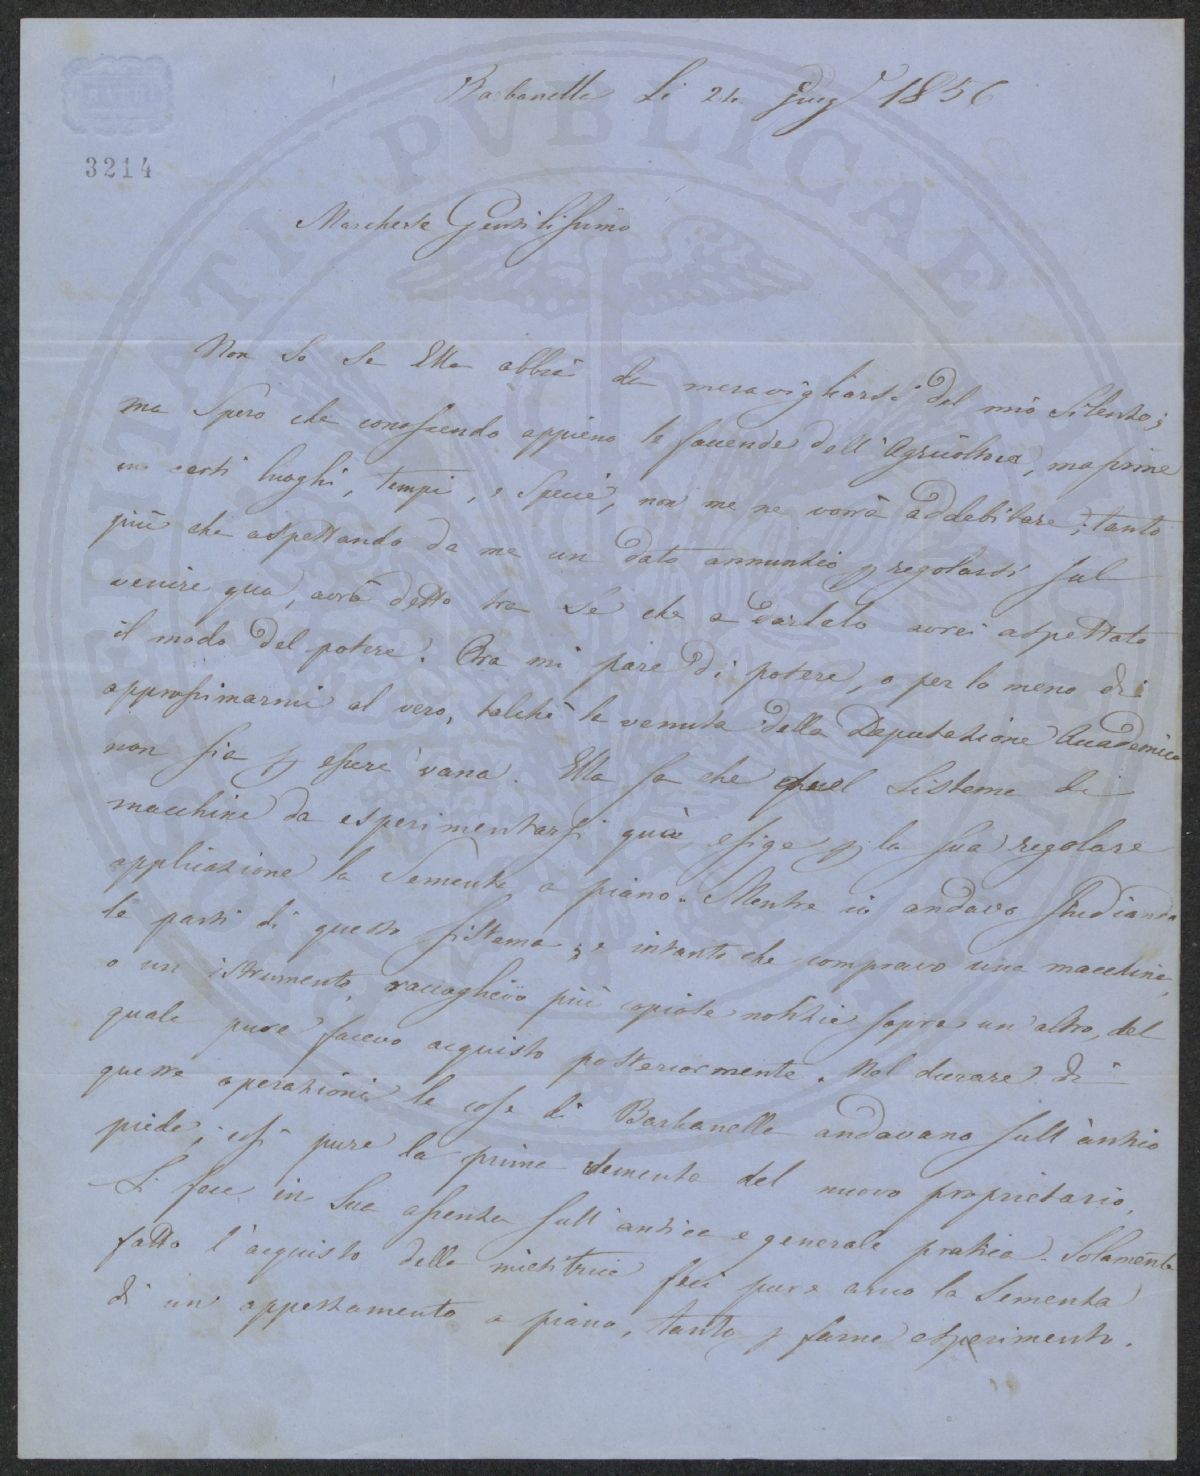 Barbanella Li 24 Giug.º 1856
3214
Marchese Gentilissimo
Non so se Ella abbia da meravigliarsi del mio silenzio;
ma spero che conoscendo appieno le faccende dell'Agricoltura, massime
in certi luoghi, tempi, e specie, non me ne vorrà addebitare; tanto
più che aspettando da me un dato annunzio p regolarsi sul
venire qua, avrà detto tra se che a darlelo avrei aspettato
il modo del potere. Ora mi pare di potere, o per lo meno di
approssimarmi al vero, talchè la venuta della Deputazione Accademica
non sia p essere vana. Ella sa che quel sistema di
macchine da esperimentarsi quià esige p la sua regolare
applicazione la sementa a piano. Mentre io andavo studiando
le parti di questo sistema; e intanto che compravo una macchina,
o un istrumento, raccoglievo più copiose notizie sopra un'altro, del
quale pure facevo acquisto posteriormente. Nel durare di
queste operazioni le cose di Barbanella andavano sull'antico
piede; così pure la prima sementa del nuovo proprietario,
si fece in sua assenza sull'antica e generale pratica. Solamente
fatto l'acquisto della mietitrice feci pure arso la sementa
di un appestamento a piano, tanto p farne esperimento.